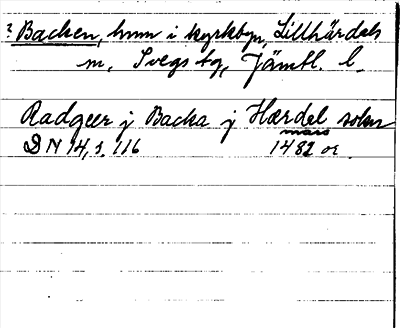 ? Backen, hmn i kyrkbyn, Lillhärdals
sn, Svegs tg, Jämtl. l.
Radgeer j Backa j Hærdal sokn
mars
DN 14, s. 116 1482 or.